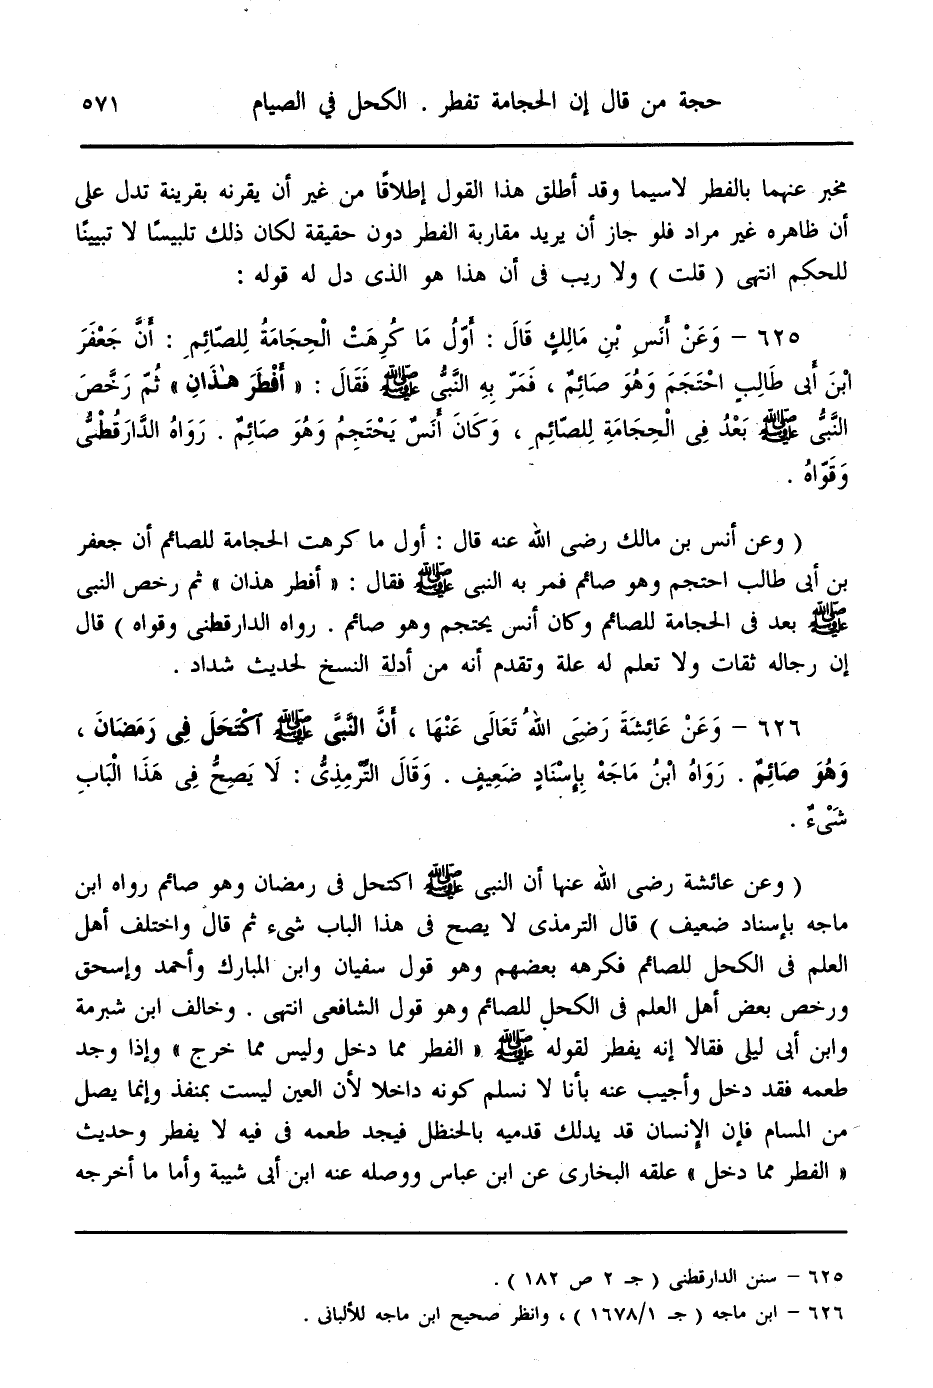 حجة من قال إن الحجامة تفطر . الكحل في الصيام ٥٧١
مخبر عنهما بالفطر لاسيما وقد أطلق هذا القول إطلاقًا من غير أن يقرنه بقرينة تدل على
أن ظاهره غير مراد فلو جاز أن يريد مقاربة الفطر دون حقيقة لكان ذلك تلبيسًا لا تبيينًا
للحكم انتهى ( قلت ) ولا ريب فى أن هذا هو الذى دل له قوله :
٦٢٥ – وَعَنْ أَنَسِ بْنِ مَالِكٍ قَالَ : أَوَّلُ مَا كُرِهَتْ الْحِجَامَةُ لِلصَّائِمِ : أَنَّ جَعْفَرَ
ابْنَ أَبى طَالِبٍ احْتَجَمَ وَهُوَ صَائِمٌ ، فَمَرّ بِهِ النَّبىُّ ﷺ فَقَالَ : « أَفْطَرَ هـٰذَانِ » ثُمّ رَخَّصَ
النَّبىُّ ﷺ بَعْدُ فِى الْحِجَامَةِ لِلصّائِمِ ، وَكَانَ أَنَسٌ يَحْتَجِمُ وَهُوَ صَائِمٌ . رَوَاهُ الدَّارَقُطْنىُّ
وَقَوّاهُ .
( وعن أنس بن مالك رضى الله عنه قال : أول ما كرهت الحجامة للصائم أن جعفر
بن أبى طالب احتجم وهو صائم فمر به النبى ﷺ فقال : « أفطر هذان » ثم رخص النبى
ﷺ بعد فى الحجامة للصائم وكان أنس يحتجم وهو صائم . رواه الدارقطنى وقواه ) قال
إن رجاله ثقات ولا تعلم له علة وتقدم أنه من أدلة النسخ لحديث شداد .
٦٢٦ – وَعَنْ عَائِشَةَ رَضِىَ اللهُ تَعَالَى عَنْهَا ، أَنَّ النَّبىَّ ﷺ اكْتَحَلَ فِى رَمَضَانَ ،
وَهُوَ صَائِمٌ . رَوَاهُ ابْنُ مَاجَهْ بِإِسْنَادٍ ضَعِيفٍ . وَقَالَ التِّرْمِذِىُّ : لَا يَصِحُّ فِى هَذَا الْبَابِ
شَىْءٌ .
( وعن عائشة رضى الله عنها أن النبى ﷺ اكتحل فى رمضان وهو صائم رواه ابن
ماجه بإسناد ضعيف ) قال الترمذى لا يصح فى هذا الباب شىء ثم قال واختلف أهل
العلم فى الكحل للصائم فكرهه بعضهم وهو قول سفيان وابن المبارك وأحمد وإسحق
ورخص بعض أهل العلم فى الكحل للصائم وهو قول الشافعى انتهى . وخالف ابن شبرمة
وابن أبى ليلى فقالا إنه يفطر لقوله ﷺ « الفطر مما دخل وليس مما خرج » وإذا وجد
طعمه فقد دخل وأجيب عنه بأنا لا نسلم كونه داخلا لأن العين ليست بمنفذ وإنما يصل
من المسام فإن الإنسان قد يدلك قدميه بالحنظل فيجد طعمه فى فيه لا يفطر وحديث
« الفطر مما دخل » علقه البخارى عن ابن عباس ووصله عنه ابن أبى شيبة وأما ما أخرجه
٦٢٥ – سنن الدارقطنى ( جـ ٢ ص ١٨٢ ) .
٦٢٦ – ابن ماجه ( جـ ١/ ١٦٧٨ ) ، وانظر صحيح ابن ماجه للألبانى .